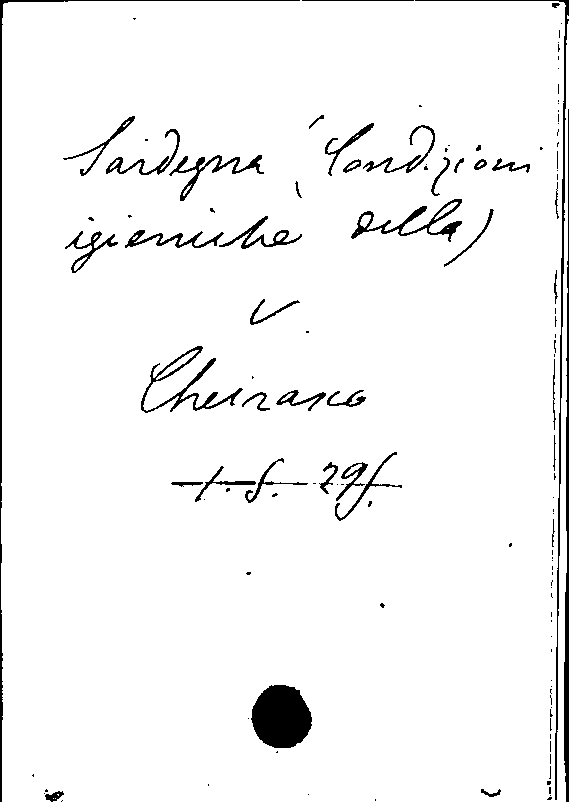 Sardegna (Condizioni
igieniche della)
v
Cheirasco
1. S. 29f.